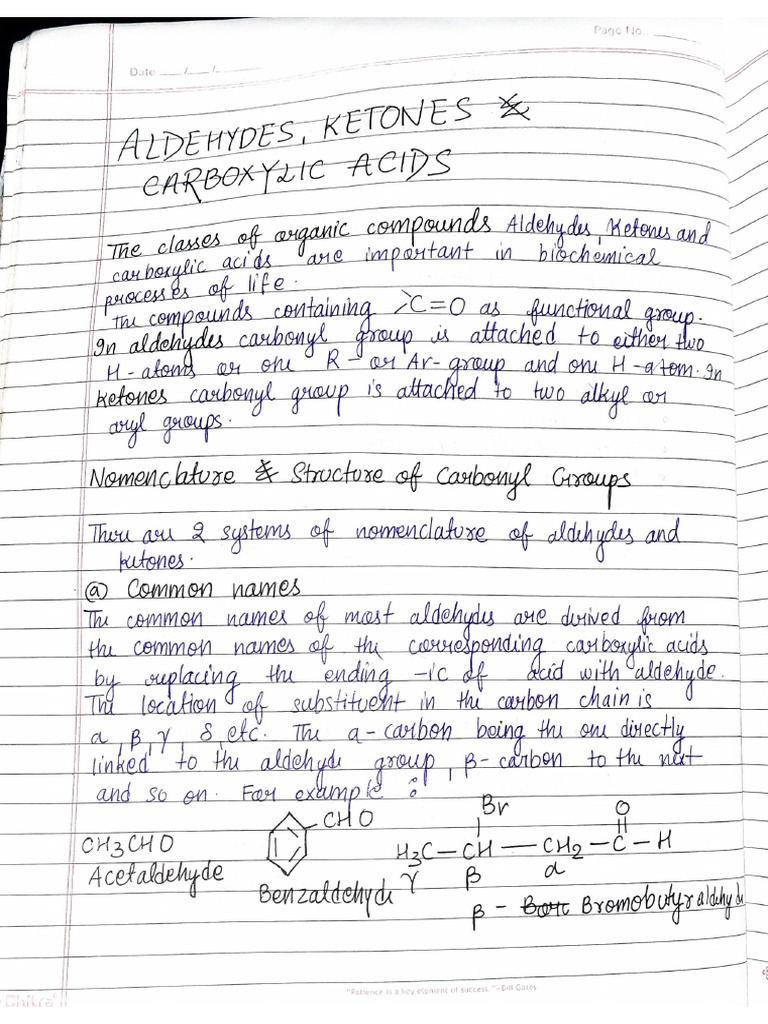 Page No.:
Date __/__/__
ALDEHYDES, KETONES &
CARBOXYLIC ACIDS
The classes of organic compounds Aldehydes, Ketones and
carboxylic acids are important in biochemical
processes of life.
The compounds containing >C=O as functional group.
In aldehydes carbonyl group is attached to either two
H-atoms or one R- or Ar-group and one H-atom. In
ketones carbonyl group is attached to two alkyl or
aryl groups.
Nomenclature & Structure of Carbonyl Groups
There are 2 systems of nomenclature of aldehydes and
ketones.
ⓐ Common names
The common names of most aldehydes are derived from
the common names of the corresponding carboxylic acids
by replacing the ending -ic of acid with aldehyde.
The location of substituent in the carbon chain is
α, β, γ, δ, etc. The α-carbon being the one directly
linked to the aldehyde group, β-carbon to the next
and so on. For example :
Br O
CHO
CH3CHO H3C—CH—CH2—C—H
Acetaldehyde Benzaldehyde γ β α
β - Bromobutyraldehyde
"Patience is a key element of success." -Bill Gates
Chitra